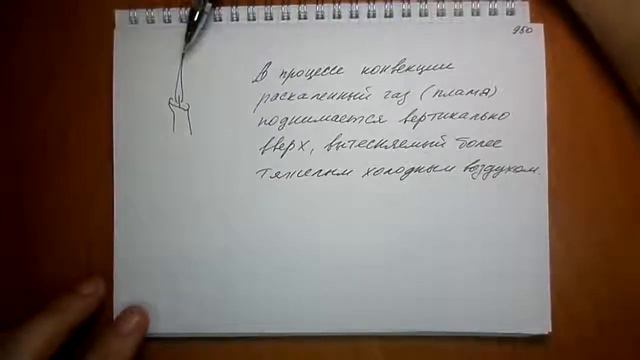 950
В процессе конвекции
раскаленный газ (пламя)
поднимается вертикально
вверх, вытесняемый более
тяжелым холодным воздухом.